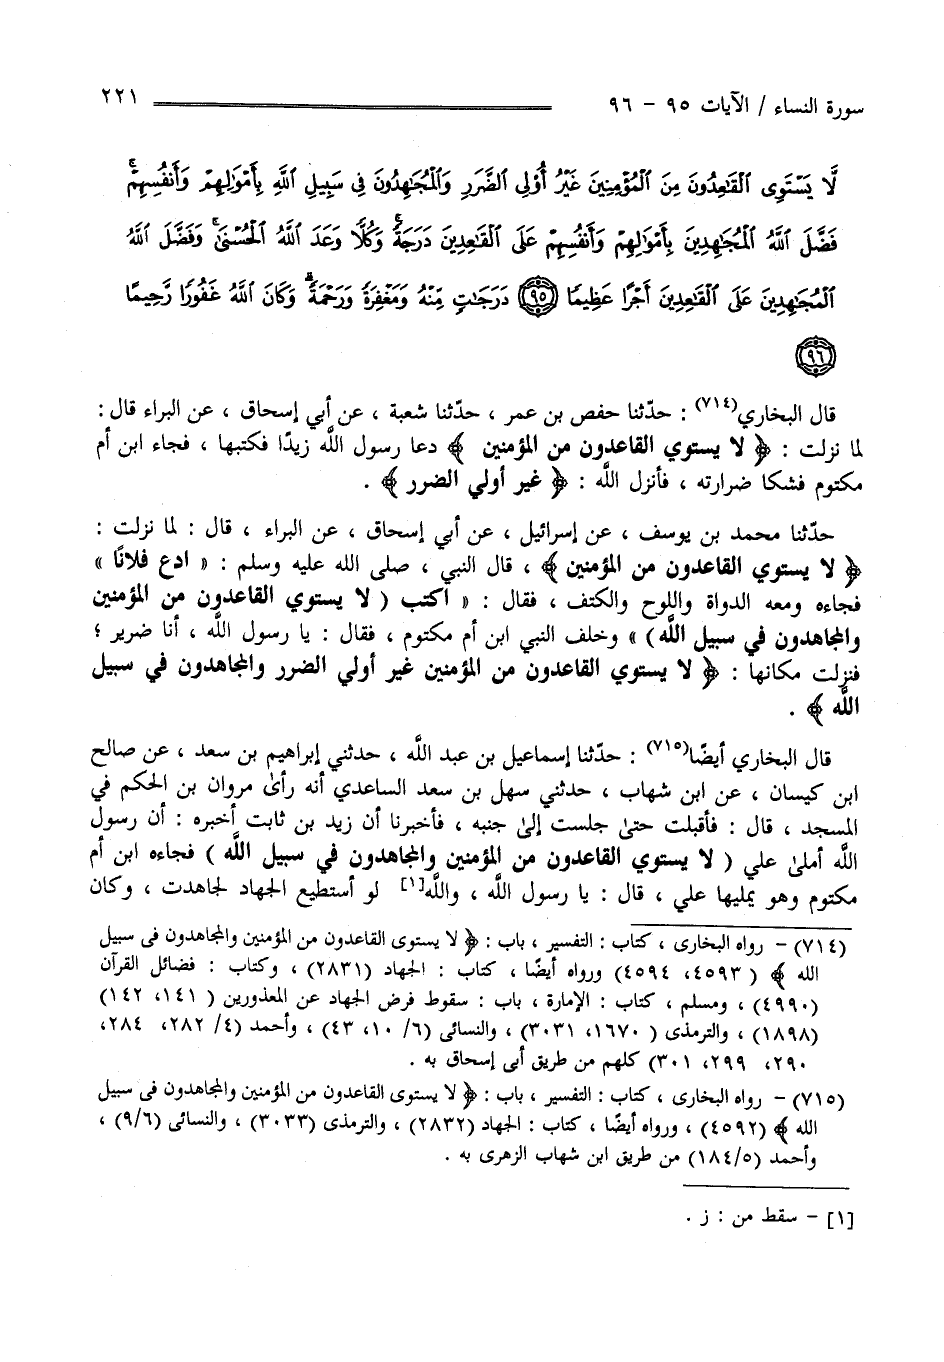 سورة النساء / الآيات ٩٥ - ٩٦ ٢٢١
لَّا يَسْتَوِى ٱلْقَٰعِدُونَ مِنَ ٱلْمُؤْمِنِينَ غَيْرُ أُو۟لِى ٱلضَّرَرِ وَٱلْمُجَٰهِدُونَ فِى سَبِيلِ ٱللَّهِ بِأَمْوَٰلِهِمْ وَأَنفُسِهِمْ ۚ
فَضَّلَ ٱللَّهُ ٱلْمُجَٰهِدِينَ بِأَمْوَٰلِهِمْ وَأَنفُسِهِمْ عَلَى ٱلْقَٰعِدِينَ دَرَجَةً ۚ وَكُلًّا وَعَدَ ٱللَّهُ ٱلْحُسْنَىٰ ۚ وَفَضَّلَ ٱللَّهُ
ٱلْمُجَٰهِدِينَ عَلَى ٱلْقَٰعِدِينَ أَجْرًا عَظِيمًا ٩٥ دَرَجَٰتٍ مِّنْهُ وَمَغْفِرَةً وَرَحْمَةً ۚ وَكَانَ ٱللَّهُ غَفُورًا رَّحِيمًا
٩٦
قال البخاري(٧١٤) : حدّثنا حفص بن عمر ، حدّثنا شعبة ، عن أبي إسحاق ، عن البراء قال :
لما نزلت : ﴿ لا يستوي القاعدون من المؤمنين ﴾ دعا رسول اللَّه زيدًا فكتبها ، فجاء ابن أم
مكتوم فشكا ضرارته ، فأنزل اللَّه : ﴿ غير أولي الضرر ﴾ .
حدّثنا محمد بن يوسف ، عن إسرائيل ، عن أبي إسحاق ، عن البراء ، قال : لما نزلت :
﴿ لا يستوي القاعدون من المؤمنين ﴾ ، قال النبي ، صلى الله عليه وسلم : « ادع فلانًا »
فجاءه ومعه الدواة واللوح والكتف ، فقال : « اكتب ( لا يستوي القاعدون من المؤمنين
والمجاهدون في سبيل اللَّه ) » وخلف النبي ابن أم مكتوم ، فقال : يا رسول اللَّه ، أنا ضرير ؛
فنزلت مكانها : ﴿ لا يستوي القاعدون من المؤمنين غير أولي الضرر والمجاهدون في سبيل
اللَّه ﴾ .
قال البخاري أيضًا(٧١٥) : حدّثنا إسماعيل بن عبد اللَّه ، حدثني إبراهيم بن سعد ، عن صالح
ابن كيسان ، عن ابن شهاب ، حدثني سهل بن سعد الساعدي أنه رأىٰ مروان بن الحكم في
المسجد ، قال : فأقبلت حتىٰ جلست إلىٰ جنبه ، فأخبرنا أن زيد بن ثابت أخبره : أن رسول
اللَّه أملىٰ علي ( لا يستوي القاعدون من المؤمنين والمجاهدون في سبيل اللَّه ) فجاءه ابن أم
مكتوم وهو يمليها علي ، قال : يا رسول اللَّه ، واللَّه[١] لو أستطيع الجهاد لجاهدت ، وكان
(٧١٤) - رواه البخارى ، كتاب : التفسير ، باب : ﴿ لا يستوى القاعدون من المؤمنين والمجاهدون فى سبيل
الله ﴾ ( ٤٥٩٣، ٤٥٩٤) ورواه أيضًا ، كتاب : الجهاد (٢٨٣١) ، وكتاب : فضائل القرآن
(٤٩٩٠) ، ومسلم ، كتاب : الإمارة ، باب : سقوط فرض الجهاد عن المعذورين ( ١٤١، ١٤٢)
(١٨٩٨) ، والترمذى ( ١٦٧٠، ٣٠٣١) ، والنسائى (٦/ ١٠، ٤٣) ، وأحمد (٤/ ٢٨٢، ٢٨٤،
٢٩٠، ٢٩٩، ٣٠١) كلهم من طريق أبى إسحاق به .
(٧١٥) - رواه البخارى ، كتاب : التفسير ، باب : ﴿ لا يستوى القاعدون من المؤمنين والمجاهدون فى سبيل
الله ﴾ (٤٥٩٢) ، ورواه أيضًا ، كتاب : الجهاد (٢٨٣٢) ، والترمذى (٣٠٣٣) ، والنسائى (٩/٦) ،
وأحمد (١٨٤/٥) من طريق ابن شهاب الزهرى به .
[١] - سقط من : ز .